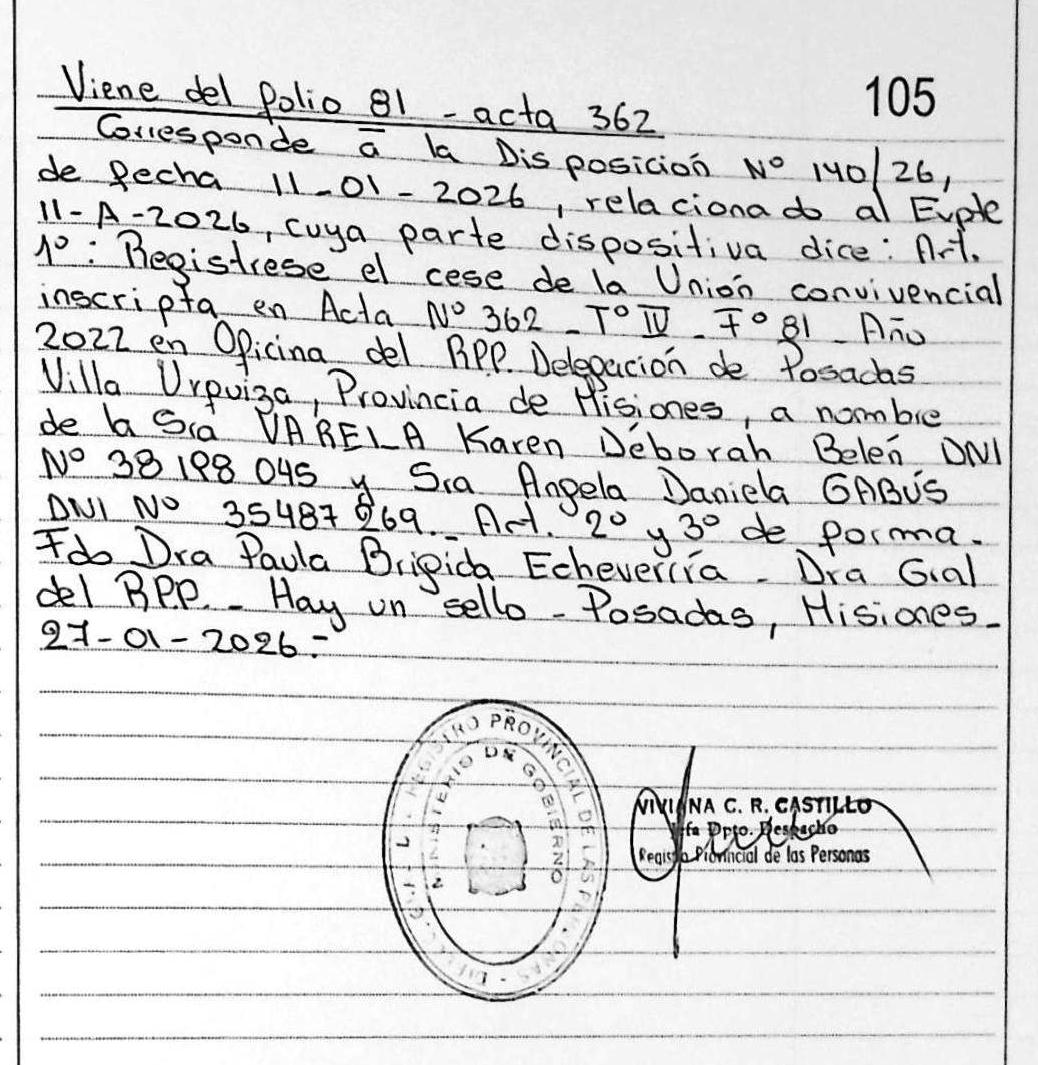 105
Viene del folio 81 - acta 362
Corresponde a la Disposición Nº 140/26,
de fecha 11-01-2026, relacionado al Expte
11-A-2026, cuya parte dispositiva dice: Art.
1º: Registrese el cese de la Unión convivencial
inscripta en Acta Nº 362 - Tº IV - Fº 81 - Año
2022 en Oficina del RPP. Delegación de Posadas
Villa Urquiza, Provincia de Misiones, a nombre
de la Sra VARELA Karen Déborah Belén DNI
Nº 38 198 045 y Sra Angela Daniela GABUS
DNI Nº 35487269. Art. 2º y 3º de forma.
Fdo Dra Paula Brigida Echeverría - Dra Gral
del RPP. - Hay un sello - Posadas, Misiones -
27-01-2026.-
REGISTRO PROVINCIAL DE LAS PERSONAS
MINISTERIO DE GOBIERNO
VIVIANA C. R. CASTILLO
Jefa Dpto. Despacho
Registro Provincial de las Personas